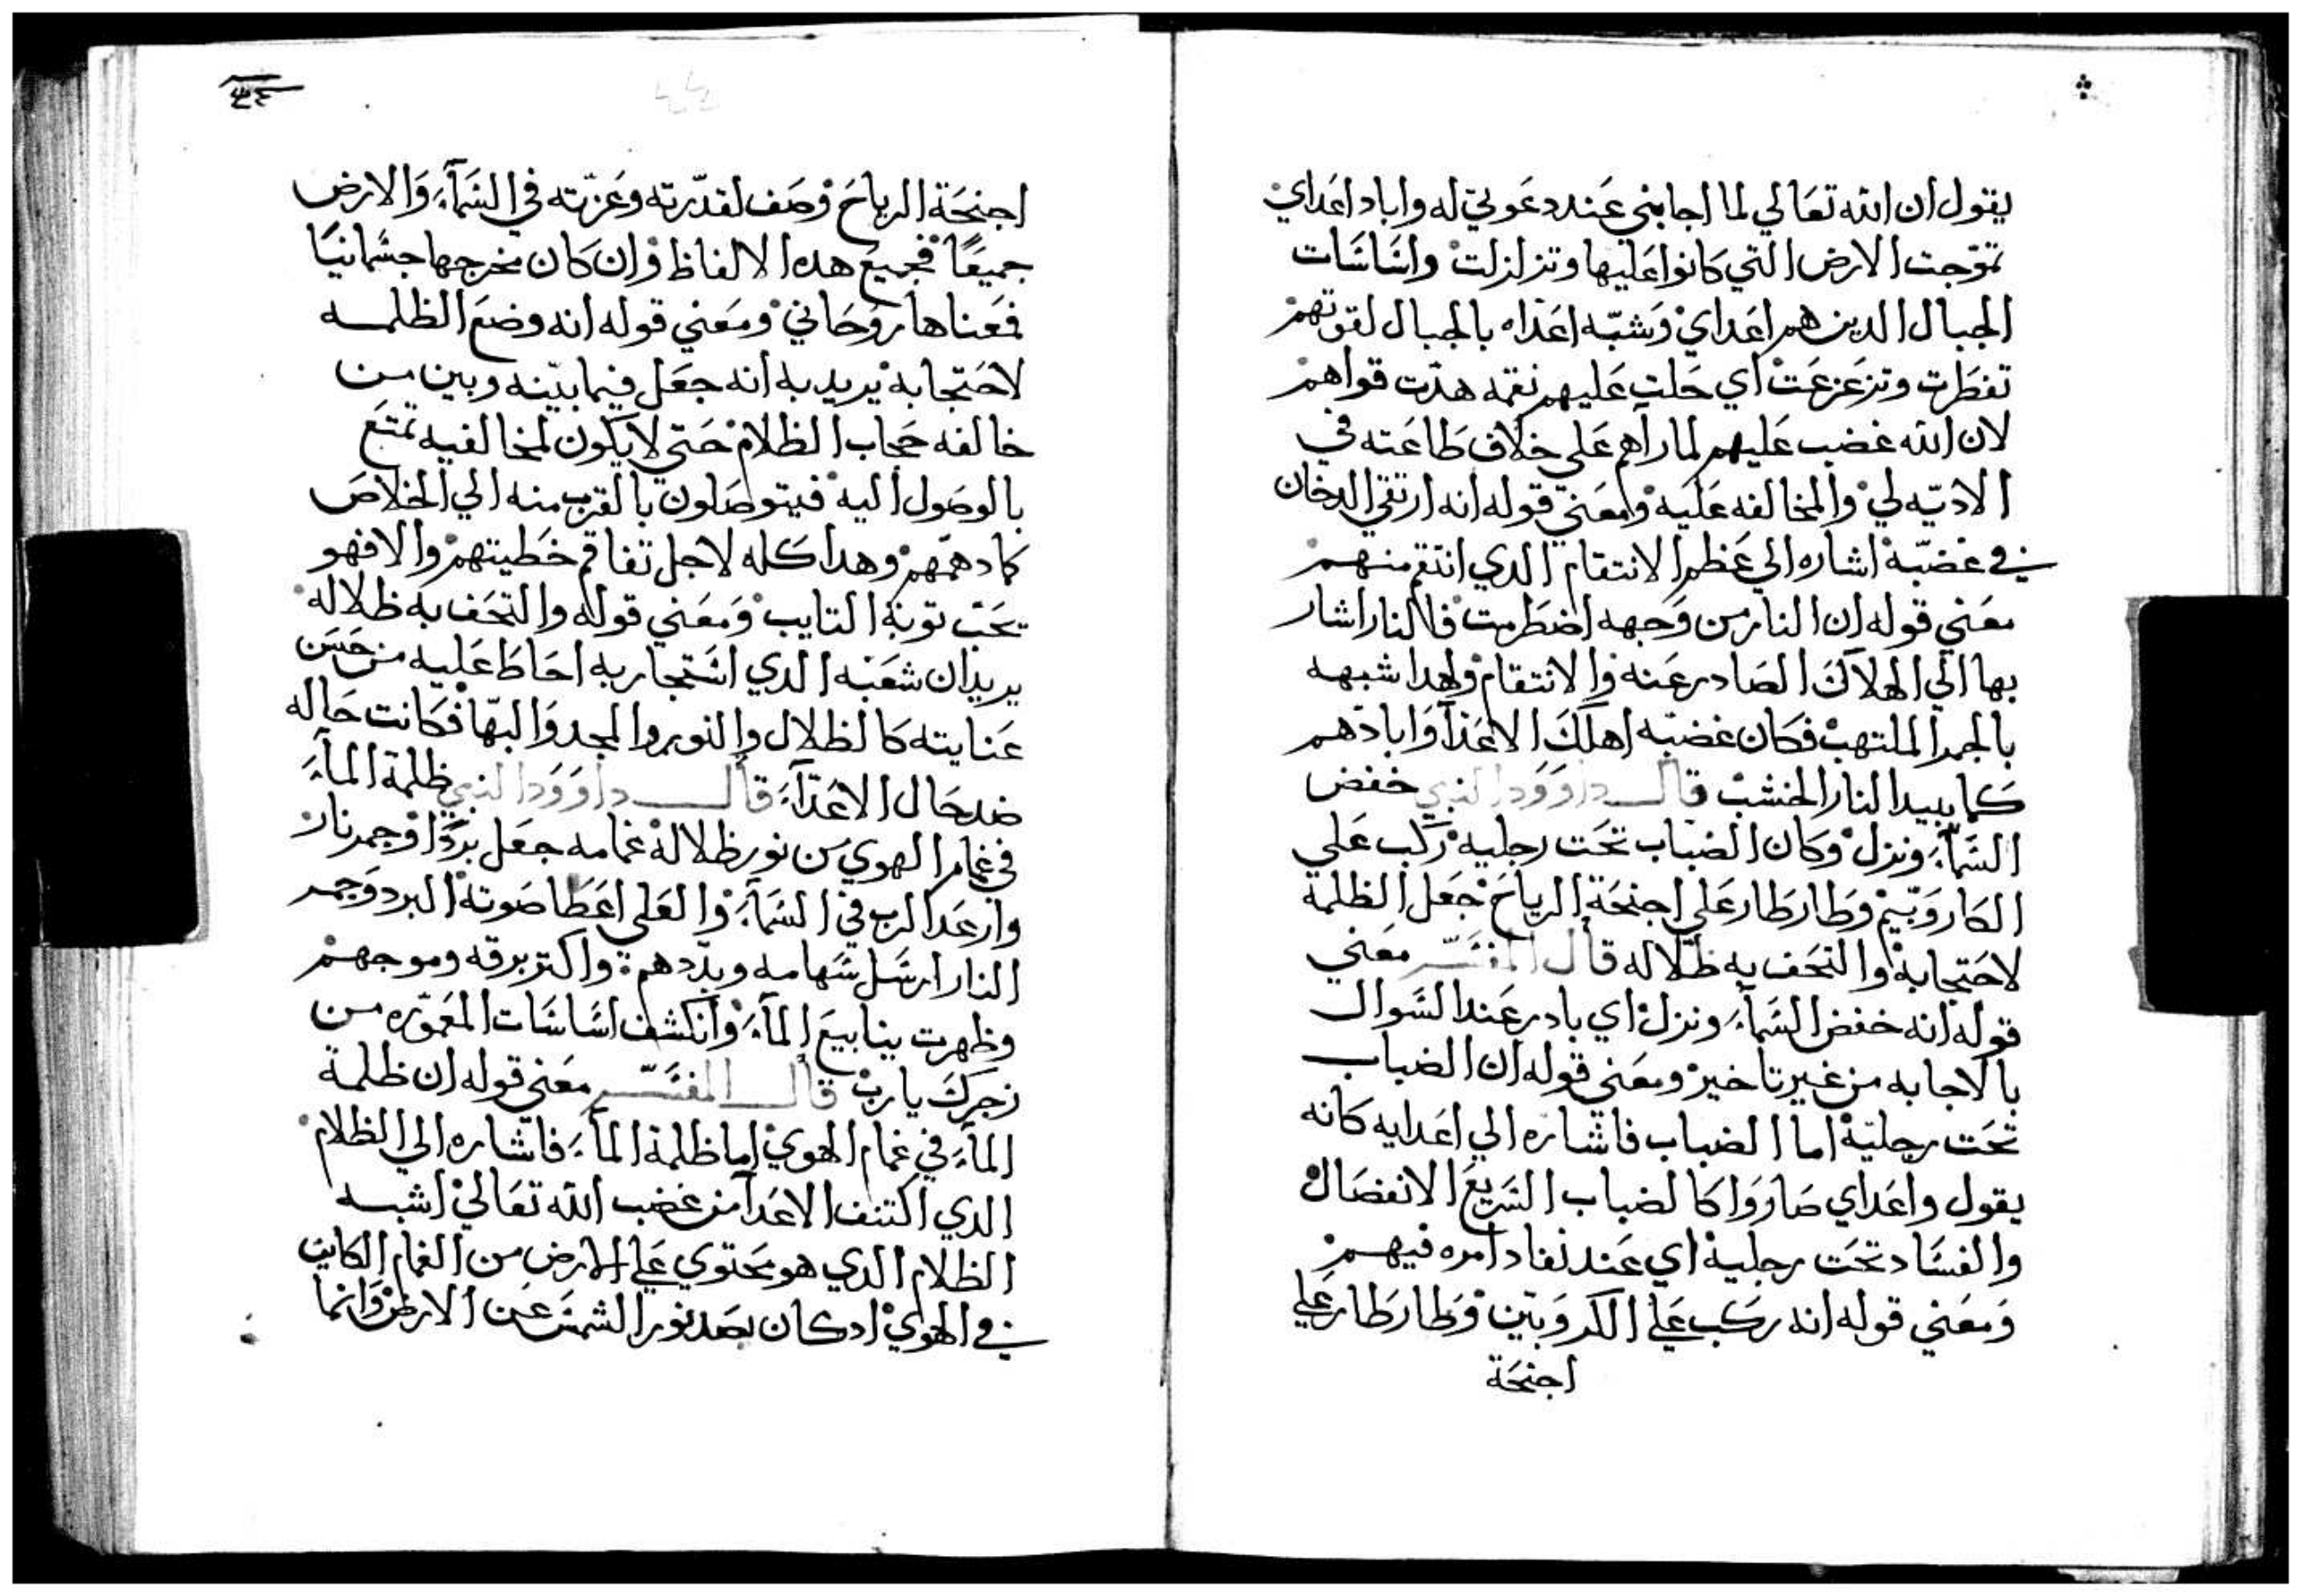 يقول ان الله تعالي لما اجابني عند دعوتي له واباد اعداي
تموجت الارض التي كانوا عليها وتزلزلت واساسات
الجبال الدين هم اعداي وشبه اعداه بالجبال لقوتهم
تفطرت وتزعزعت اي حلت عليهم نقمه هدت قواهم
لان الله غضب عليهم لما رآهم علي خلاف طاعته في
الاديه لي والمخالفه عليه ومعني قوله انه ارتقي الدخان
في غضبه اشاره الي عظم الانتقام الدي انتقم منهم
معني قوله ان النار من وجهه اضطرمت فالنار اشار
بها الي الهلاك الصادر عنه والانتقام ولهدا شبهه
بالجمر الملتهب فكان غضبه اهلك الاعدآ وابادهم
كما يبيد النار الخشب قال داوود النبي خفض
السمآء ونزل وكان الضباب تحت رجليه ركب علي
الكاروبيم وطار طار علي اجنحة الرياح جعل الظلمة
لاحتجابه والتحف به ظلاله قال المفسر معني
قوله انه خفض السمآء ونزل اي بادر عند السوال
بالاجابه من غير تاخير ومعني قوله ان الضباب
تحت رجليه اما الضباب فاشاره الي اعدايه كانه
يقول واعداي صاروا كالضباب السريع الانفصال
والفساد تحت رجليه اي عند نفاد امره فيهم
ومعني قوله انه ركب علي الكروبين وطار طار علي
اجنحة
٣٤
اجنحة الرياح وصف لقدرته وعزته في السمآء والارض
جميعًا فجميع هده الالفاظ وان كان مخرجها جسمانيًا
فمعناها روحاني ومعني قوله انه وضع الظلمه
لاحتجابه يريد به انه جعل فيما بينه وبين من
خالفه حجاب الظلام حتي لا يكون لمخالفيه تمتع
بالوصول اليه فيتوصلون بالقرب منه الي الخلاص
كما دهمهم وهدا كله لاجل تفاقم خطيتهم والا فهو
يحب توبة التايب ومعني قوله والتحف به ظلاله
يريد ان شعبه الدي استجار به احاط عليه من حسن
عنايته كالظلال والنور والمجد والبها فكانت حاله
ضد حال الاعدآء قال داوود النبي ظلمة المآء
في غمام الهوي من نور ظلاله غمامه جعل بردًا وجمر نار
وارعد الرب في السمآء والعلي اعطا صوته البرد وجمر
النار ارسل سهامه وبددهم واكتر برقه وموجهم
وظهرت ينابيع المآء وانكشف اساسات المعموره من
زجرك يارب قال المفسر معني قوله ان ظلمة
المآء في غمام الهوي اما ظلمة المآء فاشاره الي الظلام
الدي اكتنف الاعدآ من غضب الله تعالي اشبه
الظلام الدي هو محتوي علي الارض من الغمام الكاين
في الهوي ادكان يصد نور الشمس عن الارض وانما